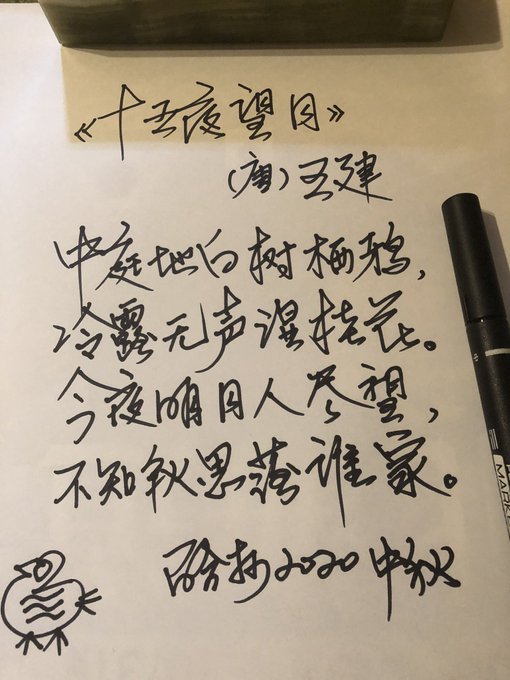 《十五夜望月》
（唐）王建
中庭地白树栖鸦，
冷露无声湿桂花。
今夜明月人尽望，
不知秋思落谁家。
抄2020中秋
MARK